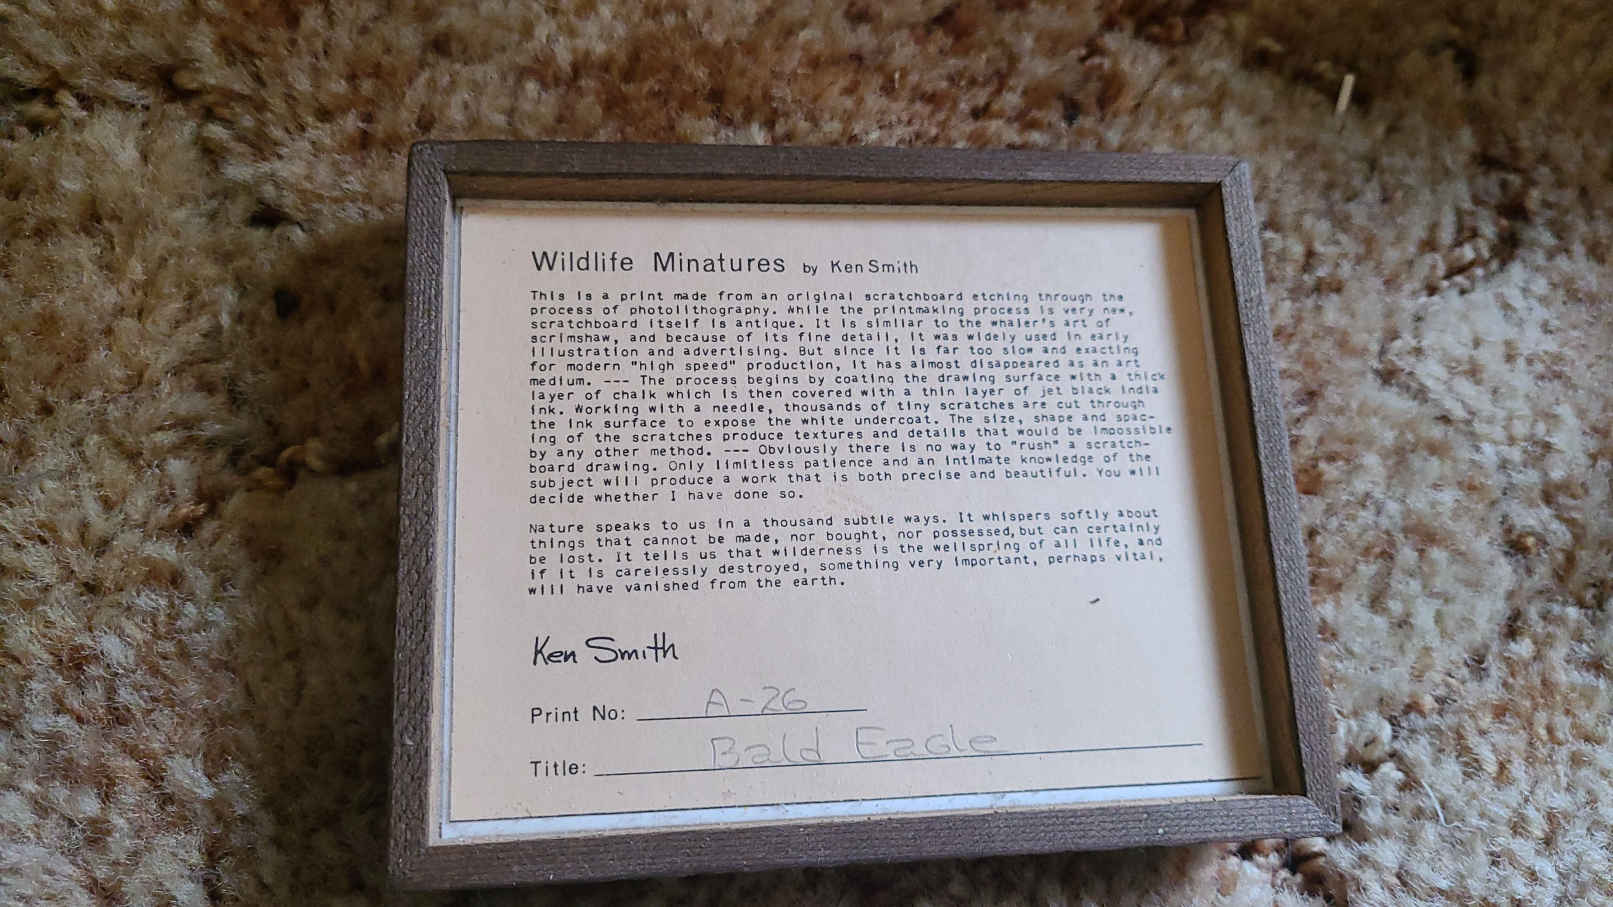 Wildlife Minatures by Ken Smith
This is a print made from an original scratchboard etching through the
process of photolithography. While the printmaking process is very new,
scratchboard itself is antique. It is similar to the whaler's art of
scrimshaw, and because of its fine detail, it was widely used in early
illustration and advertising. But since it is far too slow and exacting
for modern "high speed" production, it has almost disappeared as an art
medium. --- The process begins by coating the drawing surface with a thick
layer of chalk which is then covered with a thin layer of jet black India
ink. Working with a needle, thousands of tiny scratches are cut through
the ink surface to expose the white undercoat. The size, shape and spac-
ing of the scratches produce textures and details that would be impossible
by any other method. --- Obviously there is no way to "rush" a scratch-
board drawing. Only limitless patience and an intimate knowledge of the
subject will produce a work that is both precise and beautiful. You will
decide whether I have done so.
Nature speaks to us in a thousand subtle ways. It whispers softly about
things that cannot be made, nor bought, nor possessed, but can certainly
be lost. It tells us that wilderness is the wellspring of all life, and
if it is carelessly destroyed, something very important, perhaps vital,
will have vanished from the earth.
Ken Smith
Print No: A-26
Title: Bald Eagle